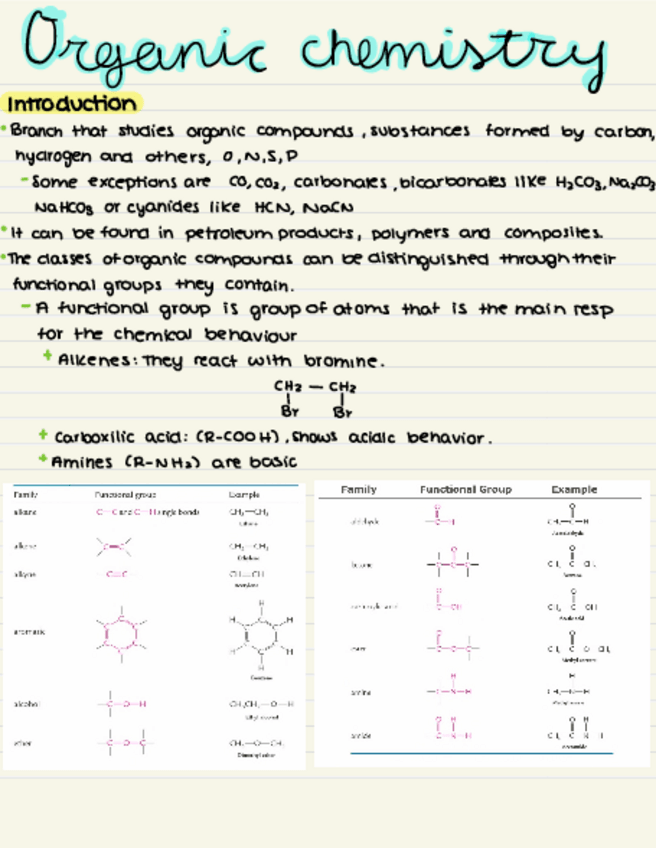 Organic chemistry
Introduction
• Branch that studies organic compounds, substances formed by carbon,
hydrogen and others, O, N, S, P
- Some exceptions are CO, CO₂, carbonates, bicarbonates like H₂CO₃, Na₂CO₃
NaHCO₃ or cyanides like HCN, NaCN
• It can be found in petroleum products, polymers and composites.
• The classes of organic compounds can be distinguished through their
functional groups they contain.
- A functional group is group of atoms that is the main resp
for the chemical behaviour
+ Alkenes: They react with bromine.
CH₂ — CH₂
Br Br
+ Carboxilic acid: (R-COOH), shows acidic behavior.
+ Amines (R-NH₂) are basic
Family Functional group Example
alkane C—C and C—H single bonds CH₃—CH₃
alkene C=C
alkyne
aromatic
alcohol C—O—H CH₃CH₂—O—H
ether C—O—C CH₃—O—CH₃
Dimethyl ether
Family Functional Group Example
aldehyde
ketone
ester
amine
amide